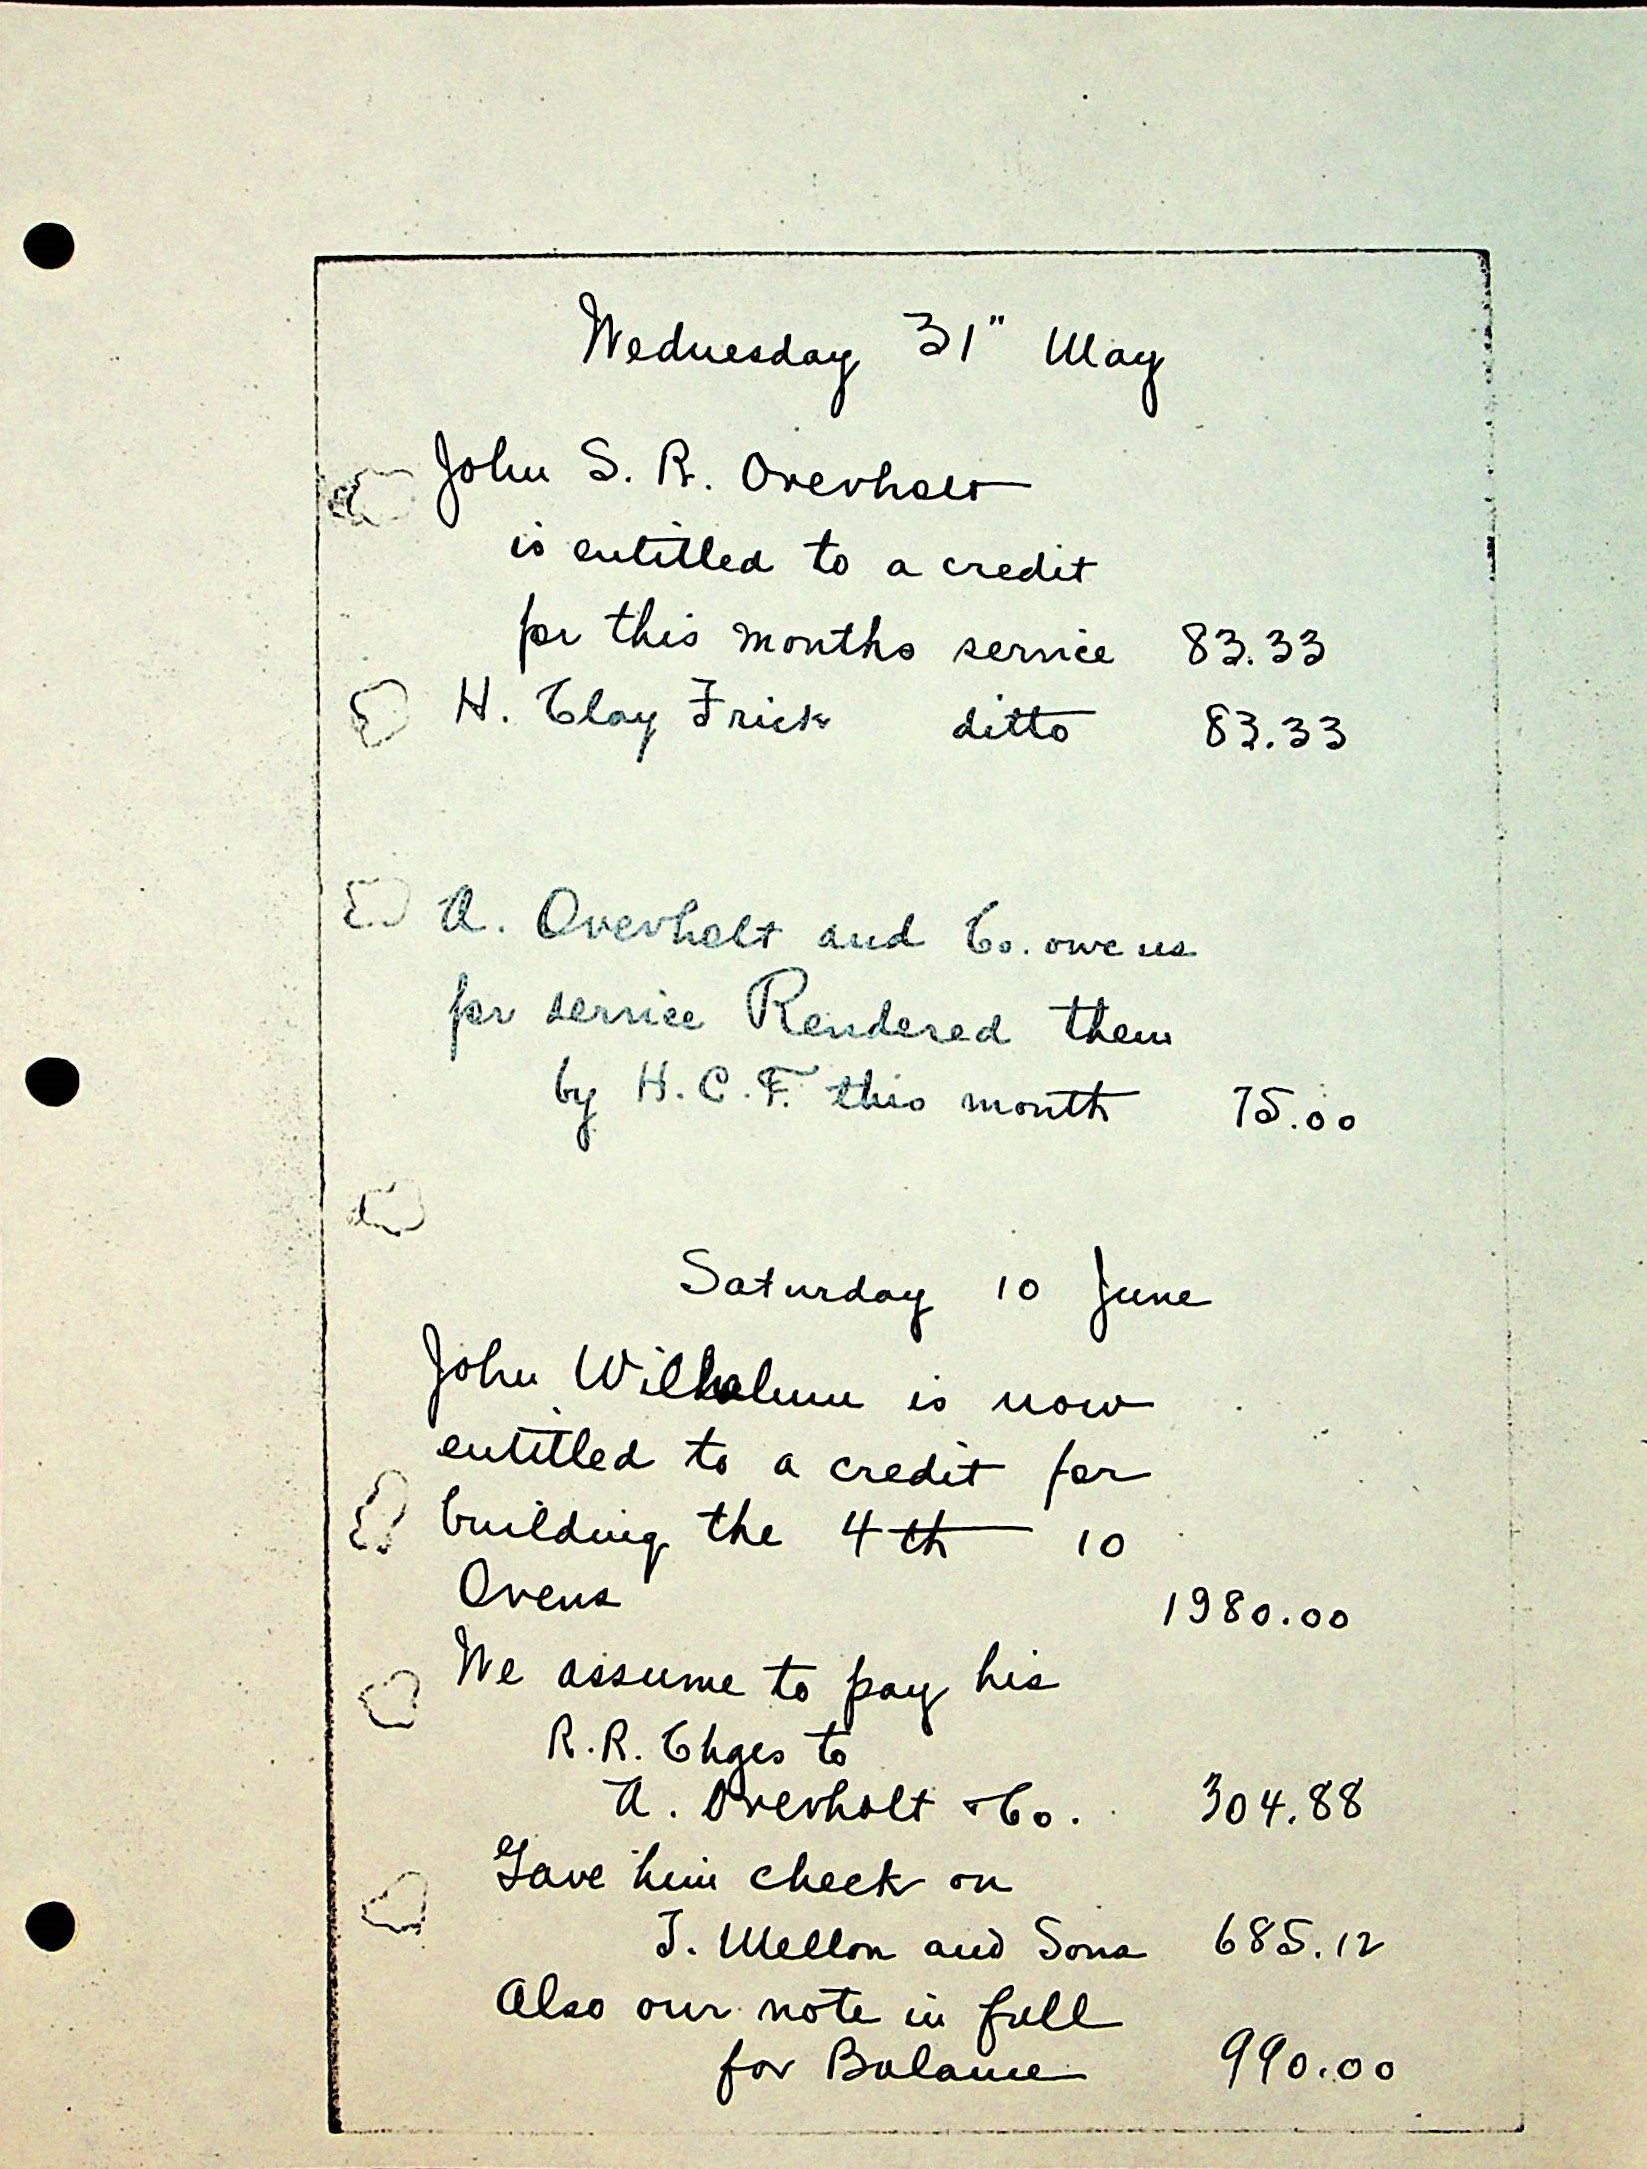 Wednesday 31" May
John S. R. Overholt
is entitled to a credit
for this months service 83.33
H. Clay Frick ditto 83.33
A. Overholt and Co. owe us
for service Rendered them
by H. C. F. this month 75.00
Saturday 10 June
John Wilhelm is now
entitled to a credit for
building the 4th 10
Ovens 1980.00
We assume to pay his
R.R. Chges to
A. Overholt & Co. 304.88
Gave him check on
T. Mellon and Sons 685.12
Also our note in full
for Balance 990.00